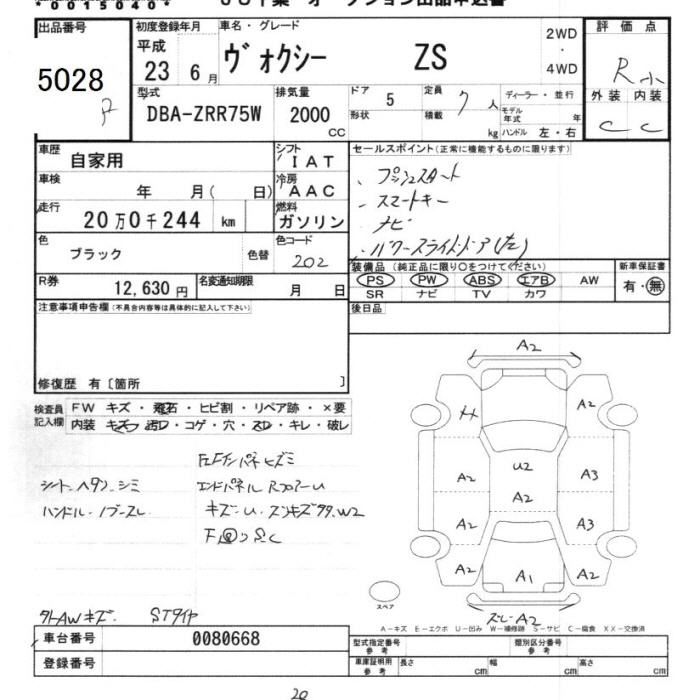 *0015040*
出品番号
5028
初度登録年月
平成
23 6月
車名・グレード
ヴォクシー ZS
2WD
・
4WD
評価点
R
外装 内装
C C
型式
DBA-ZRR75W
排気量
2000
CC
ドア
5
定員
7 人
ディーラー・並行
形状
積載
kg
モデル年式
年
ハンドル 左・右
車歴
自家用
シフト
IAT
セールスポイント(正常に機能するものに限ります)
プッシュスタート
スマートキー
ナビ
パワースライドドア(左)
車検
年 月( 日)
冷房
AAC
走行
20万0千244 km
燃料
ガソリン
色
ブラック
色替
色コード
202
装備品(純正品に限り○をつけてください)
PS PW ABS エアB AW
SR ナビ TV カワ
新車保証書
有・無
R券
12,630円
名変通知期限
月 日
後日品
注意事項申告欄(不具合内容等は具体的に記入して下さい)
修復歴 有〔箇所 〕
検査員記入欄
FW キズ・飛石・ヒビ割・リペア跡・×要
内装 キズ・汚レ・コゲ・穴・スレ・キレ・破レ
シート ヘタリ シミ
エンドパネル
A2
A2
U2
A2
A2
A3
A2
A3
A2
A1
A2
A2
スペア
A-キズ E-エクボ U-凹み W-補修跡 S-サビ C-腐食 XX-交換済
AWキズ
車台番号
0080668
登録番号
型式指定番号
参考
類別区分番号
参考
車庫証明用
参考
長さ cm
幅 cm
高さ cm
20